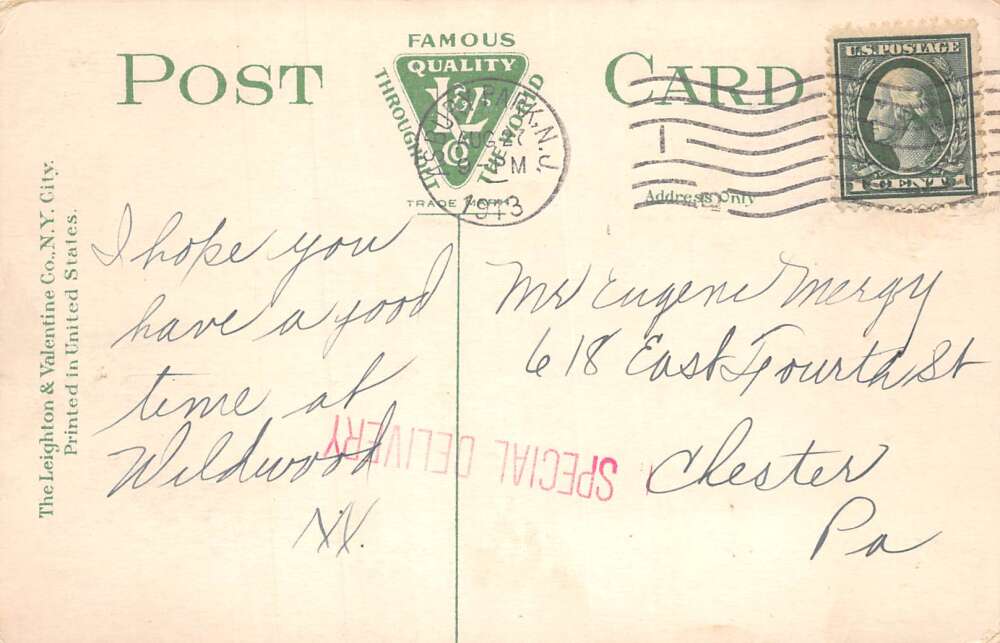 POST CARD
FAMOUS
QUALITY
THROUGHOUT
THE WORLD
L & V Co
TRADE MARK
PARK, N.J.
AUG 27
PM
1913
U.S. POSTAGE
1 CENT 1
Address Only
The Leighton & Valentine Co., N.Y. City.
Printed in United States.
I hope you
have a good
time at
Wildwood
Mr Eugene Mergy
618 East Fourth St
Chester
Pa
SPECIAL DELIVERY